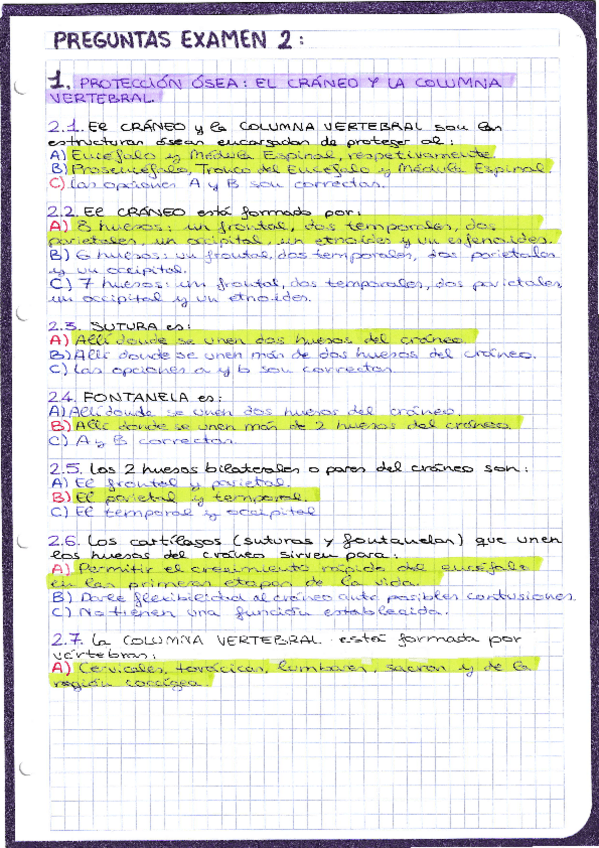 PREGUNTAS EXAMEN 2:
1. PROTECCIÓN ÓSEA: EL CRÁNEO Y LA COLUMNA
VERTEBRAL.
2.1. El CRÁNEO y la COLUMNA VERTEBRAL son las
estructuras óseas encargadas de proteger al:
A) Encéfalo y Médula Espinal, respetivamente.
B) Prosencéfalo, Tronco del Encéfalo y Médula Espinal.
C) Las opciones A y B son correctas.
2.2. El CRÁNEO está formado por:
A) 8 huesos: un frontal, dos temporales, dos
parietales, un occipital, un etnoides y un esfenoides.
B) 6 huesos: un frontal, dos temporales, dos parietales
y un occipital.
C) 7 huesos: un frontal, dos temporales, dos parietales,
un occipital y un etnoides.
2.3. SUTURA es:
A) Allí donde se unen dos huesos del cráneo.
B) Allí donde se unen más de dos huesos del cráneo.
C) Las opciones a y b son correctas.
2.4. FONTANELA es:
A) Allí donde se unen dos huesos del cráneo.
B) Allí donde se unen más de 2 huesos del cráneo.
C) A y B correctas.
2.5. Los 2 huesos bilaterales o pares del cráneo son:
A) El frontal y parietal.
B) El parietal y temporal.
C) El temporal y occipital
2.6. Los cartílagos (suturas y fontanelas) que unen
los huesos del cráneo sirven para:
A) Permitir el crecimiento rápido del encéfalo
en las primeras etapas de la vida.
B) Darle flexibilidad al cráneo ante posibles contusiones.
C) No tienen una función establecida.
2.7. La COLUMNA VERTEBRAL está formada por
vértebras:
A) Cervicales, torácicas, lumbares, sacras y de la
región coccígea.